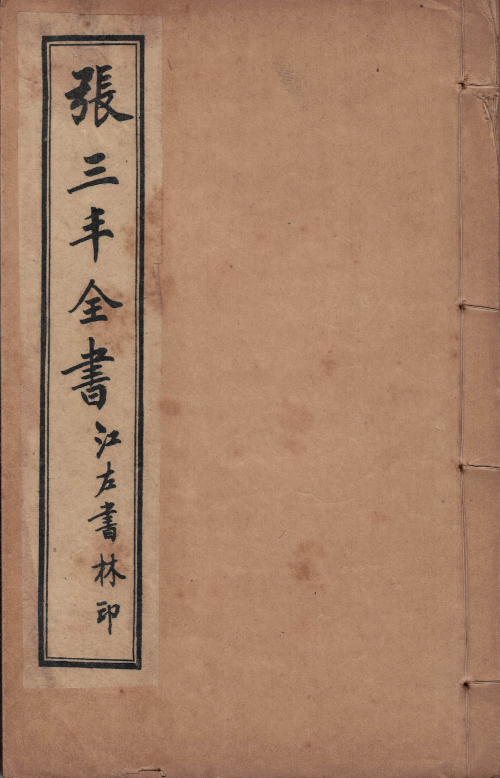 張三丰全書
江左書林印